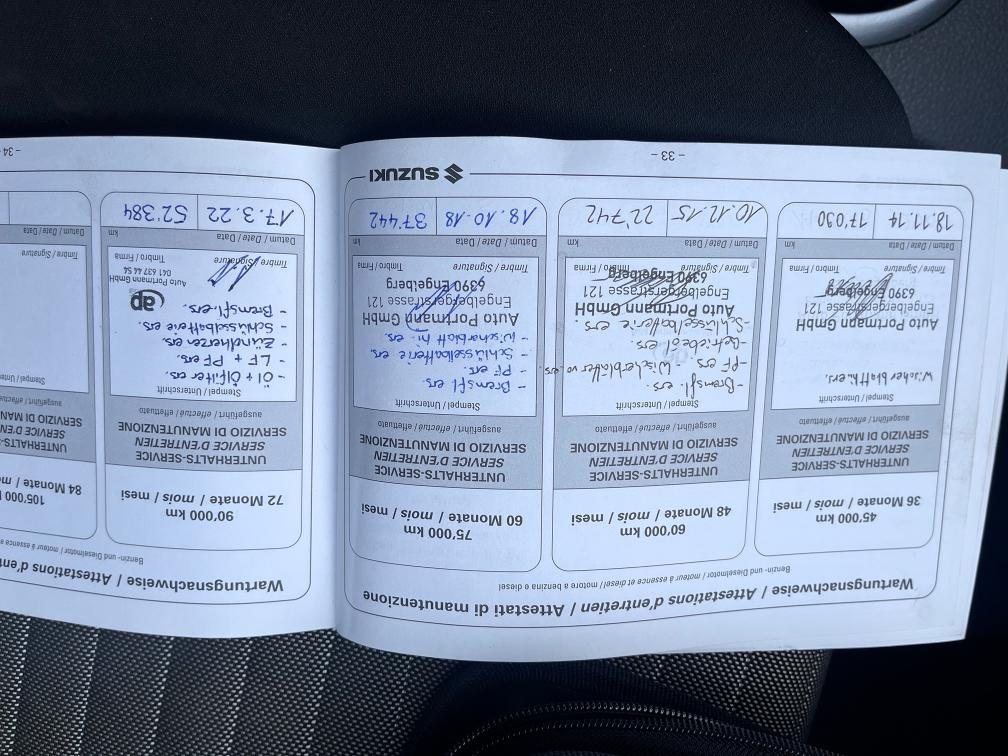 Wartungsnachweise / Attestations d'entretien / Attestati di manutenzione
Benzin- und Dieselmotor / moteur à essence et diesel / motore a benzina e diesel
45'000 km
36 Monate / mois / mesi
UNTERHALTS-SERVICE
SERVICE D'ENTRETIEN
SERVIZIO DI MANUTENZIONE
ausgeführt / effectué / effettuato
Stempel / Unterschrift
Wischerblatt hi. ers.
Auto Portmann GmbH
Engelbergerstrasse 121
6390 Engelberg
Timbre / Signature
Timbro / Firma
Datum / Date / Data
km
18.11.14
17'030
60'000 km
48 Monate / mois / mesi
UNTERHALTS-SERVICE
SERVICE D'ENTRETIEN
SERVIZIO DI MANUTENZIONE
ausgeführt / effectué / effettuato
Stempel / Unterschrift
- Bremsfl. ers.
- PF ers. - Wischerblätter vo. ers.
- Getriebeöl ers.
- Schlüsselbatterie ers.
Auto Portmann GmbH
Engelbergerstrasse 121
6390 Engelberg
Timbre / Signature
Timbro / Firma
Datum / Date / Data
km
10.12.15
22'742
75'000 km
60 Monate / mois / mesi
UNTERHALTS-SERVICE
SERVICE D'ENTRETIEN
SERVIZIO DI MANUTENZIONE
ausgeführt / effectué / effettuato
Stempel / Unterschrift
- Bremsfl. ers
- PF ers.
- Schlüsselbatterie ers
- Wischerblatt hi. ers
Auto Portmann GmbH
Engelbergerstrasse 121
6390 Engelberg
Timbre / Signature
Timbro / Firma
Datum / Date / Data
km
18.10.18
37'442
SUZUKI
- 33 -
Wartungsnachweise / Attestations d'ent
Benzin- und Dieselmotor / moteur à essence e
90'000 km
72 Monate / mois / mesi
UNTERHALTS-SERVICE
SERVICE D'ENTRETIEN
SERVIZIO DI MANUTENZIONE
ausgeführt / effectué / effettuato
Stempel / Unterschrift
- Öl + Ölfilter ers.
- LF + PF ers.
- Zündkerzen ers.
- Schlüsselbatterie ers.
- Bremsfl. ers.
ap
Auto Portmann GmbH
041 637 44 54
Timbre / Signature
Timbro / Firma
Datum / Date / Data
km
17.3.22
52'384
105'000
84 Monate / mo
UNTERHALTS
SERVICE D'EN
SERVIZIO DI MAN
ausgeführt / effect
Stempel / Unter
Timbre / Signature
Datum / Date / Data
- 34 -